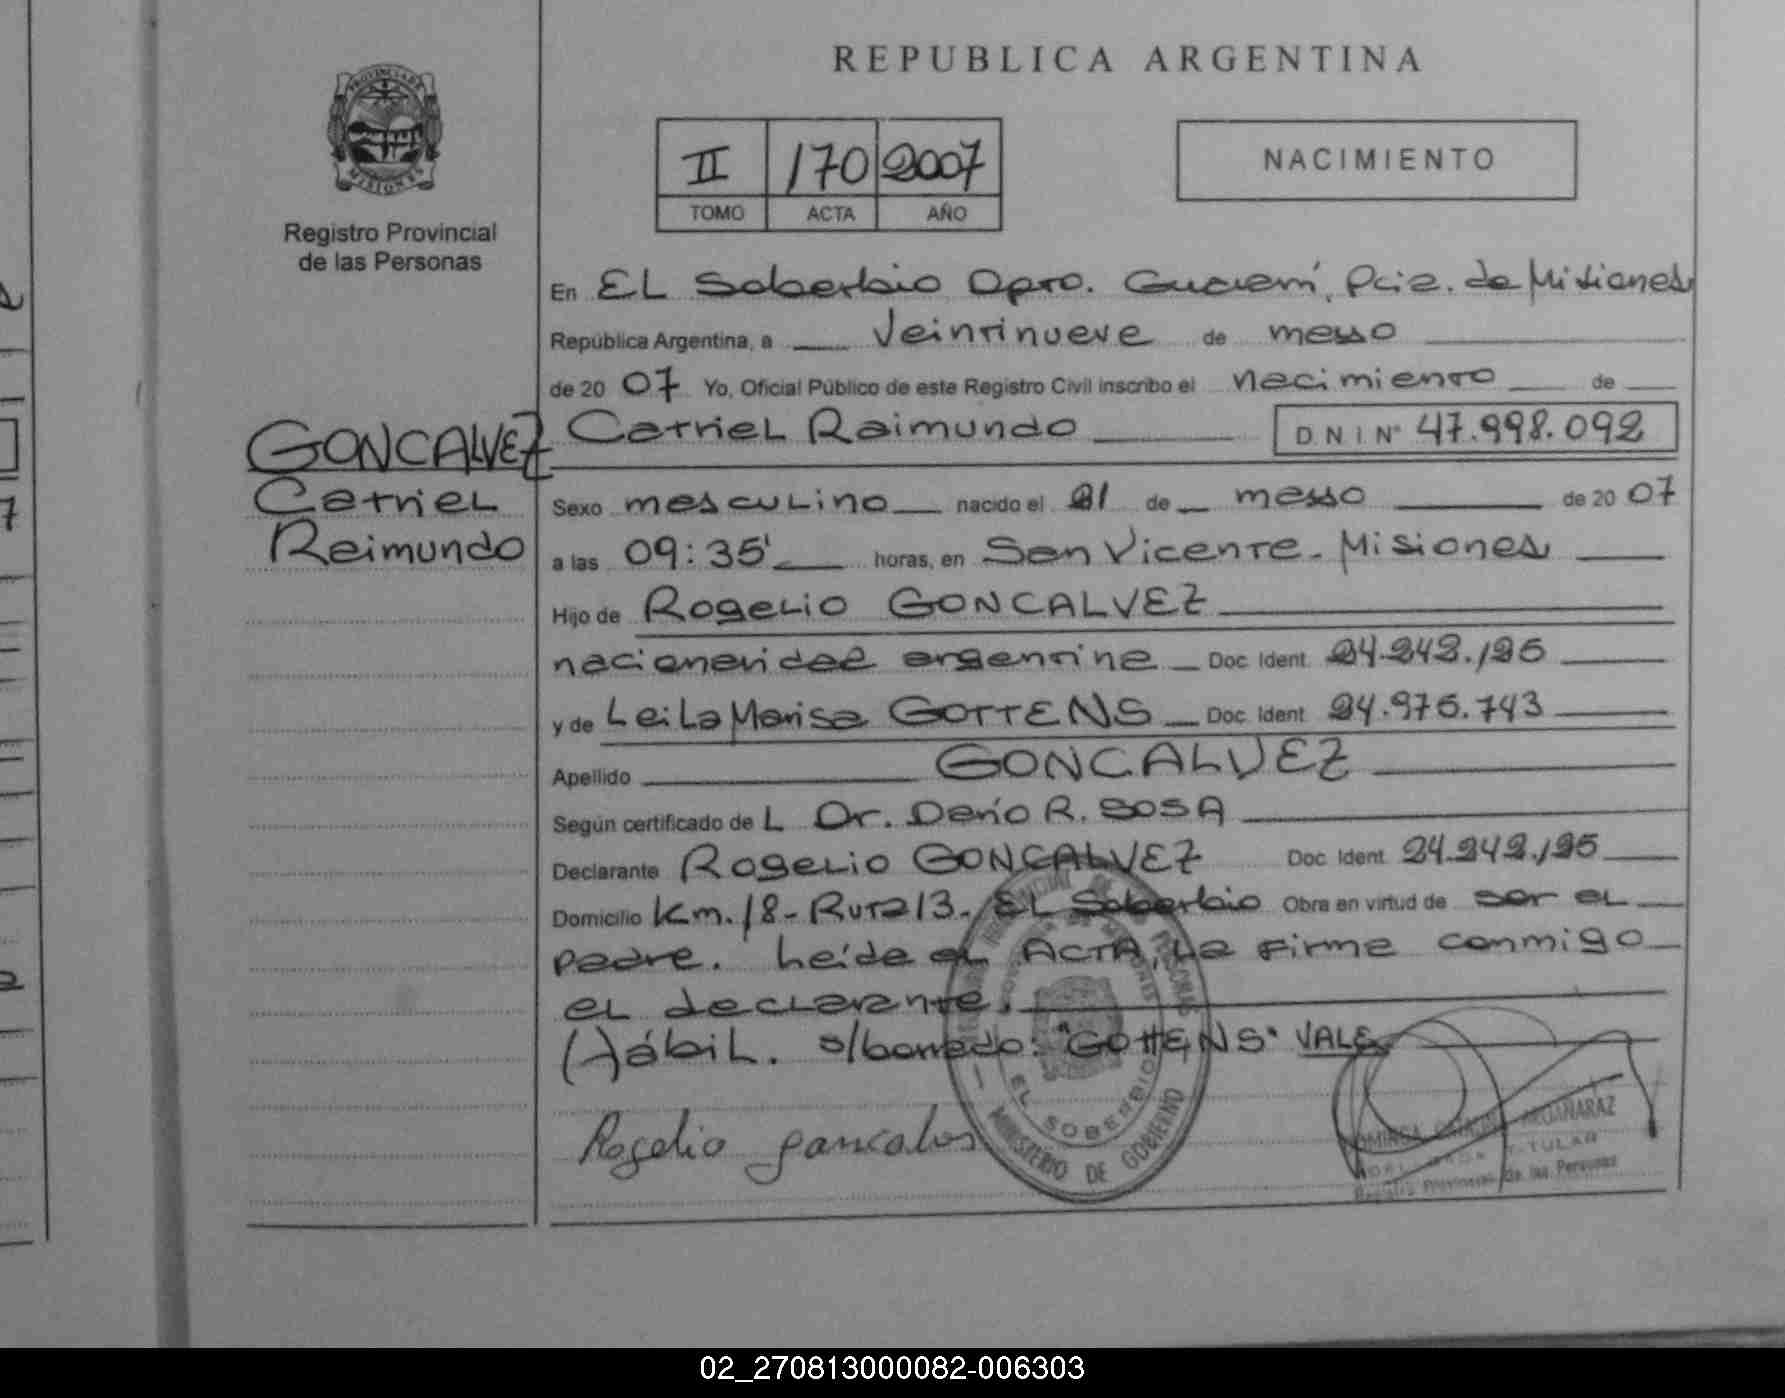 REPUBLICA ARGENTINA
PROVINCIA DE MISIONES
Registro Provincial
de las Personas
II 170 2007
TOMO ACTA AÑO
NACIMIENTO
En EL Soberbio Dpto. Guaraní, Pcia. de Misiones
República Argentina, a Veintinueve de marzo
de 20 07 Yo, Oficial Público de este Registro Civil inscribo el nacimiento de
GONCALVEZ
Catriel
Raimundo
Catriel Raimundo D N I Nº 47.998.092
Sexo masculino nacido el 21 de marzo de 20 07
a las 09:35' horas, en San Vicente - Misiones
Hijo de Rogelio GONCALVEZ
nacionalidad argentina Doc. Ident. 24.242.125
y de Leila Marisa GOTTENS Doc. Ident. 24.975.743
Apellido GONCALVEZ
Según certificado de L Dr. Darío R. SOSA
Declarante Rogelio GONCALVEZ Doc. Ident. 24.242.125
Domicilio Km. 18 - Ruta 13 - EL Soberbio Obra en virtud de ser el
padre. Leída el ACTA, La firma conmigo
el declarante.
(-) ábil. s/borrado: "GOTTENS" VALE
Rogelio goncalves
EL SOBERBIO
MINISTERIO DE GOBIERNO
TITULAR
Registro Provincial de las Personas
02_270813000082-006303